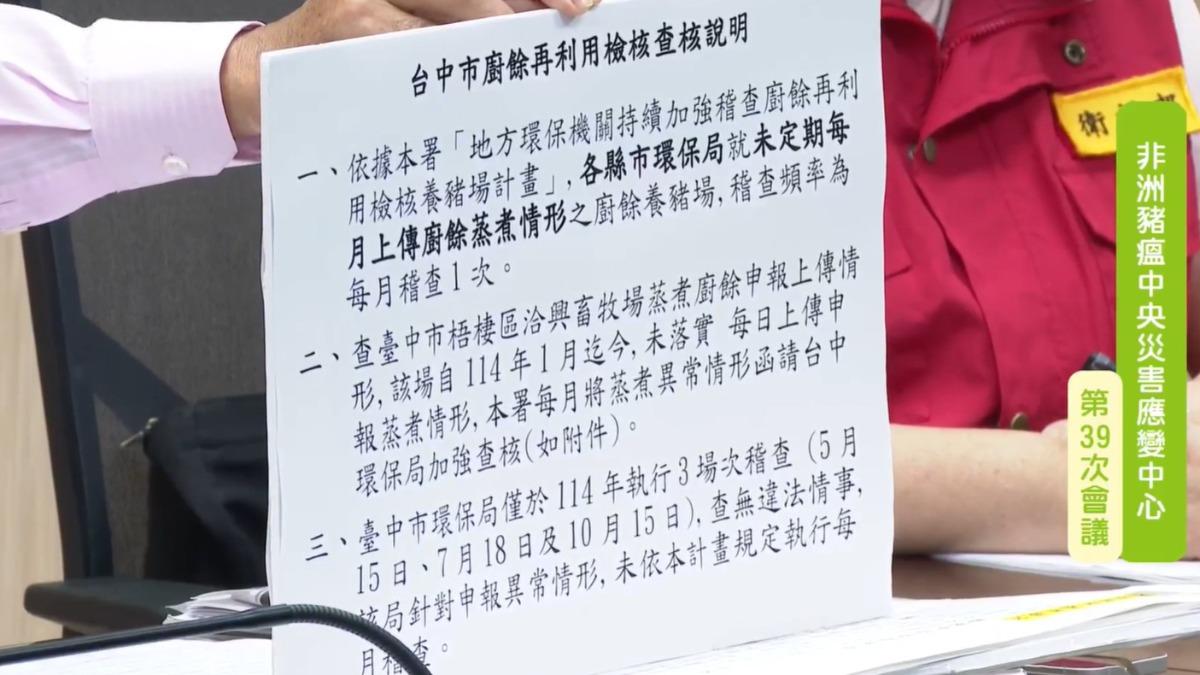 台中市廚餘再利用檢核查核說明
一、依據本署「地方環保機關持續加強稽查廚餘再利
用檢核養豬場計畫」,各縣市環保局就未定期每
月上傳廚餘蒸煮情形之廚餘養豬場,稽查頻率為
每月稽查1次。
二、查臺中市梧棲區洽興畜牧場蒸煮廚餘申報上傳情
形,該場自114年1月迄今,未落實 每日上傳申
報蒸煮情形,本署每月將蒸煮異常情形函請台中
環保局加強查核(如附件)。
三、臺中市環保局僅於114年執行3場次稽查(5月
15日、7月18日及10月15日),查無違法情事,
該局針對申報異常情形,未依本計畫規定執行每
月稽查。
衛
非洲豬瘟中央災害應變中心
第39次會議